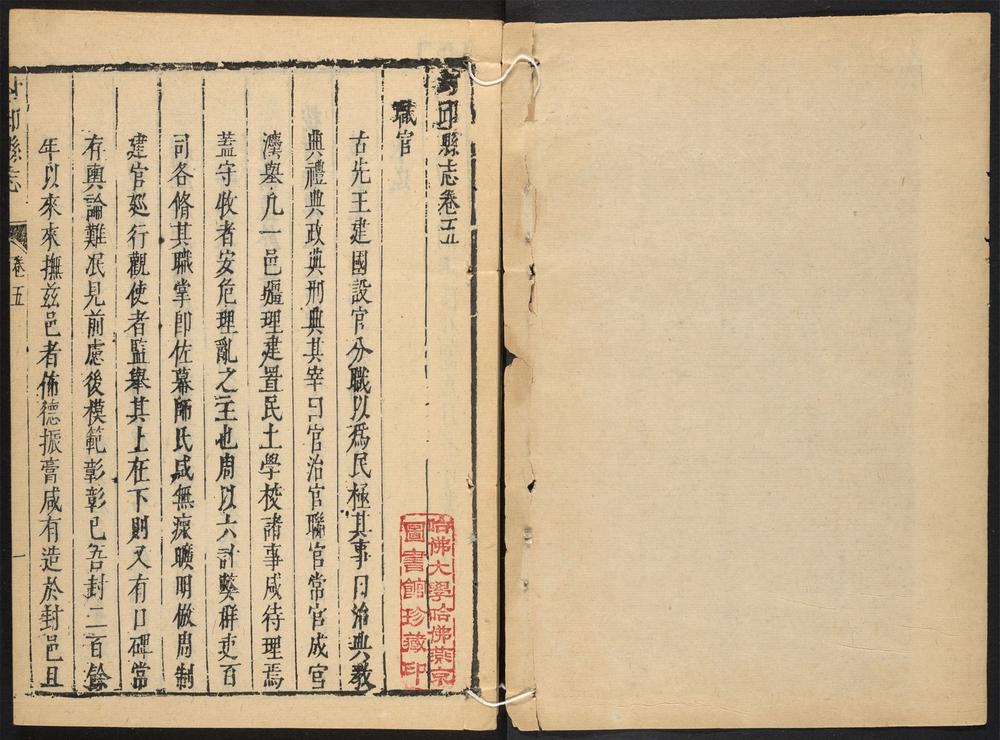 封邱縣志卷五
職官
古先王建國設官分職以爲民極其事曰治典教
典禮典政典刑典其宰曰官治官聯官常官成官
灋墨凡一邑疆理建置民土學校諸事咸待理焉
蓋守牧者安危理亂之主也周以六計獘群吏百
司各脩其職掌即佐幕師氏咸無瘝曠明倣周制
建官廵行觀使者監舉其上在下則又有口碑常
有輿論難泯見前慮後模範彰彰已吾封二百餘
年以來來撫茲邑者佈德振膏咸有造於封邑且
卷五
一
哈佛大學哈佛燕京
圖書館珍藏印